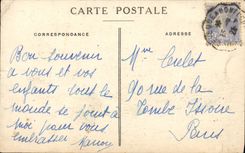 CARTE POSTALE
CORRESPONDANCE
ADRESSE
Bon Souvenir
a vous et vos
enfants tout le
monde se joint à
moi pour vous
embrasser
Mme
90 rue de la
Tombe Issoire
Paris